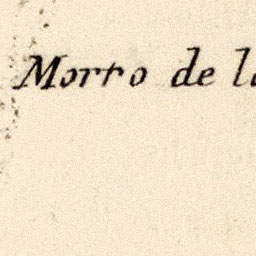 Morro de la